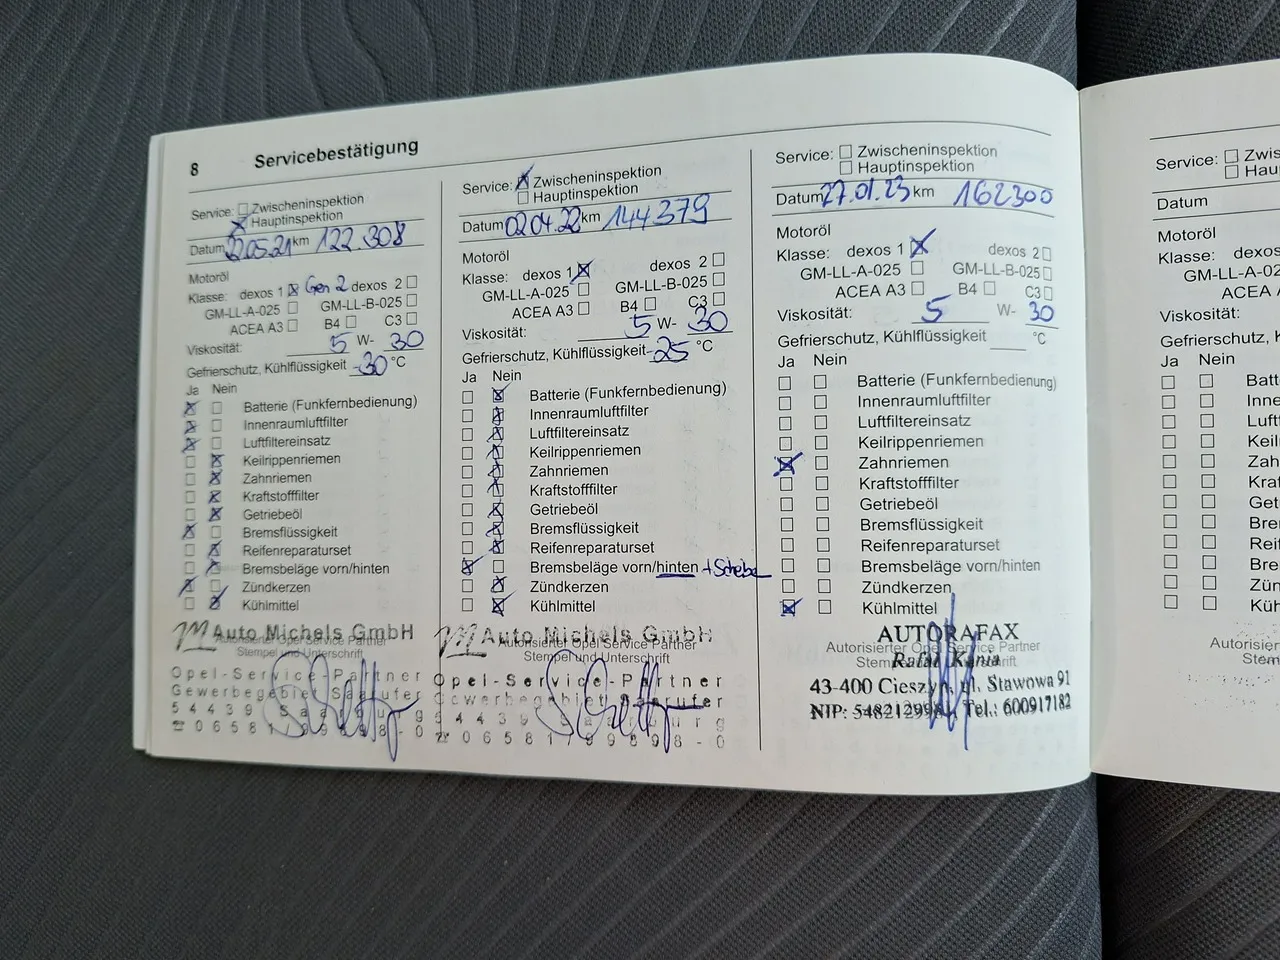 8 Servicebestätigung
Service: Zwischeninspektion
Hauptinspektion
Datum 22.05.21 km 122.308
Motoröl
Klasse: dexos 1 Gen 2 dexos 2
GM-LL-A-025 GM-LL-B-025
ACEA A3 B4 C3
Viskosität: 5 W- 30
Gefrierschutz, Kühlflüssigkeit -30 °C
Ja Nein
Batterie (Funkfernbedienung)
Innenraumluftfilter
Luftfiltereinsatz
Keilrippenriemen
Zahnriemen
Kraftstofffilter
Getriebeöl
Bremsflüssigkeit
Reifenreparaturset
Bremsbeläge vorn/hinten
Zündkerzen
Kühlmittel
Auto Michels GmbH
Autorisierter Opel Service Partner
Stempel und Unterschrift
Opel-Service Partner
Gewerbegebiet
54439
06581
Service: Zwischeninspektion
Hauptinspektion
Datum 02.04.22 km 144379
Motoröl
Klasse: dexos 1 dexos 2
GM-LL-A-025 GM-LL-B-025
ACEA A3 B4 C3
Viskosität: 5 W- 30
Gefrierschutz, Kühlflüssigkeit -25 °C
Ja Nein
Batterie (Funkfernbedienung)
Innenraumluftfilter
Luftfiltereinsatz
Keilrippenriemen
Zahnriemen
Kraftstofffilter
Getriebeöl
Bremsflüssigkeit
Reifenreparaturset
Bremsbeläge vorn/hinten
Zündkerzen
Kühlmittel
Auto Michels GmbH
Autorisierter Opel Service Partner
Stempel und Unterschrift
Opel-Service-Partner
Gewerbegebiet
Service: Zwischeninspektion
Hauptinspektion
Datum 27.01.23 km 162300
Motoröl
Klasse: dexos 1 dexos 2
GM-LL-A-025 GM-LL-B-025
ACEA A3 B4 C3
Viskosität: 5 W- 30
Gefrierschutz, Kühlflüssigkeit °C
Ja Nein
Batterie (Funkfernbedienung)
Innenraumluftfilter
Luftfiltereinsatz
Keilrippenriemen
Zahnriemen
Kraftstofffilter
Getriebeöl
Bremsflüssigkeit
Reifenreparaturset
Bremsbeläge vorn/hinten
Zündkerzen
Kühlmittel
AUTORAFAX
Autorisierter Opel Service Partner
Rafał Kania
43-400 Cieszyn, ul. Stawowa 91
NIP: Tel.: 600917182
Service: Zwis
Haup
Datum
Motoröl
Klasse: dexos
GM-LL-A-02
ACEA A
Viskosität:
Gefrierschutz, K
Ja Nein
Batt
Inne
Luft
Keil
Zah
Kra
Get
Bre
Rei
Bre
Zün
Küh
Autorisierter
Stem